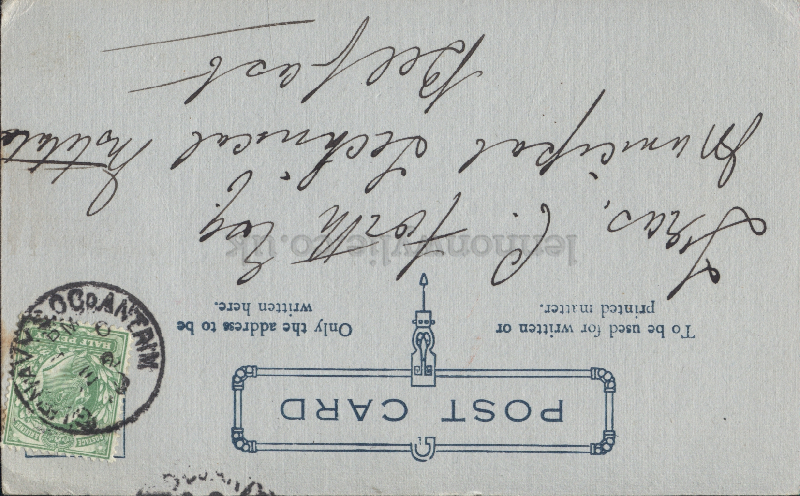 POST CARD
To be used for written or
printed matter.
Only the address to be
written here.
lennonwylie.co.uk
Fras. C. Forth Esq.
Municipal Technical Institute
Belfast
GLENAVY CO. ANTRIM
HALF PENNY